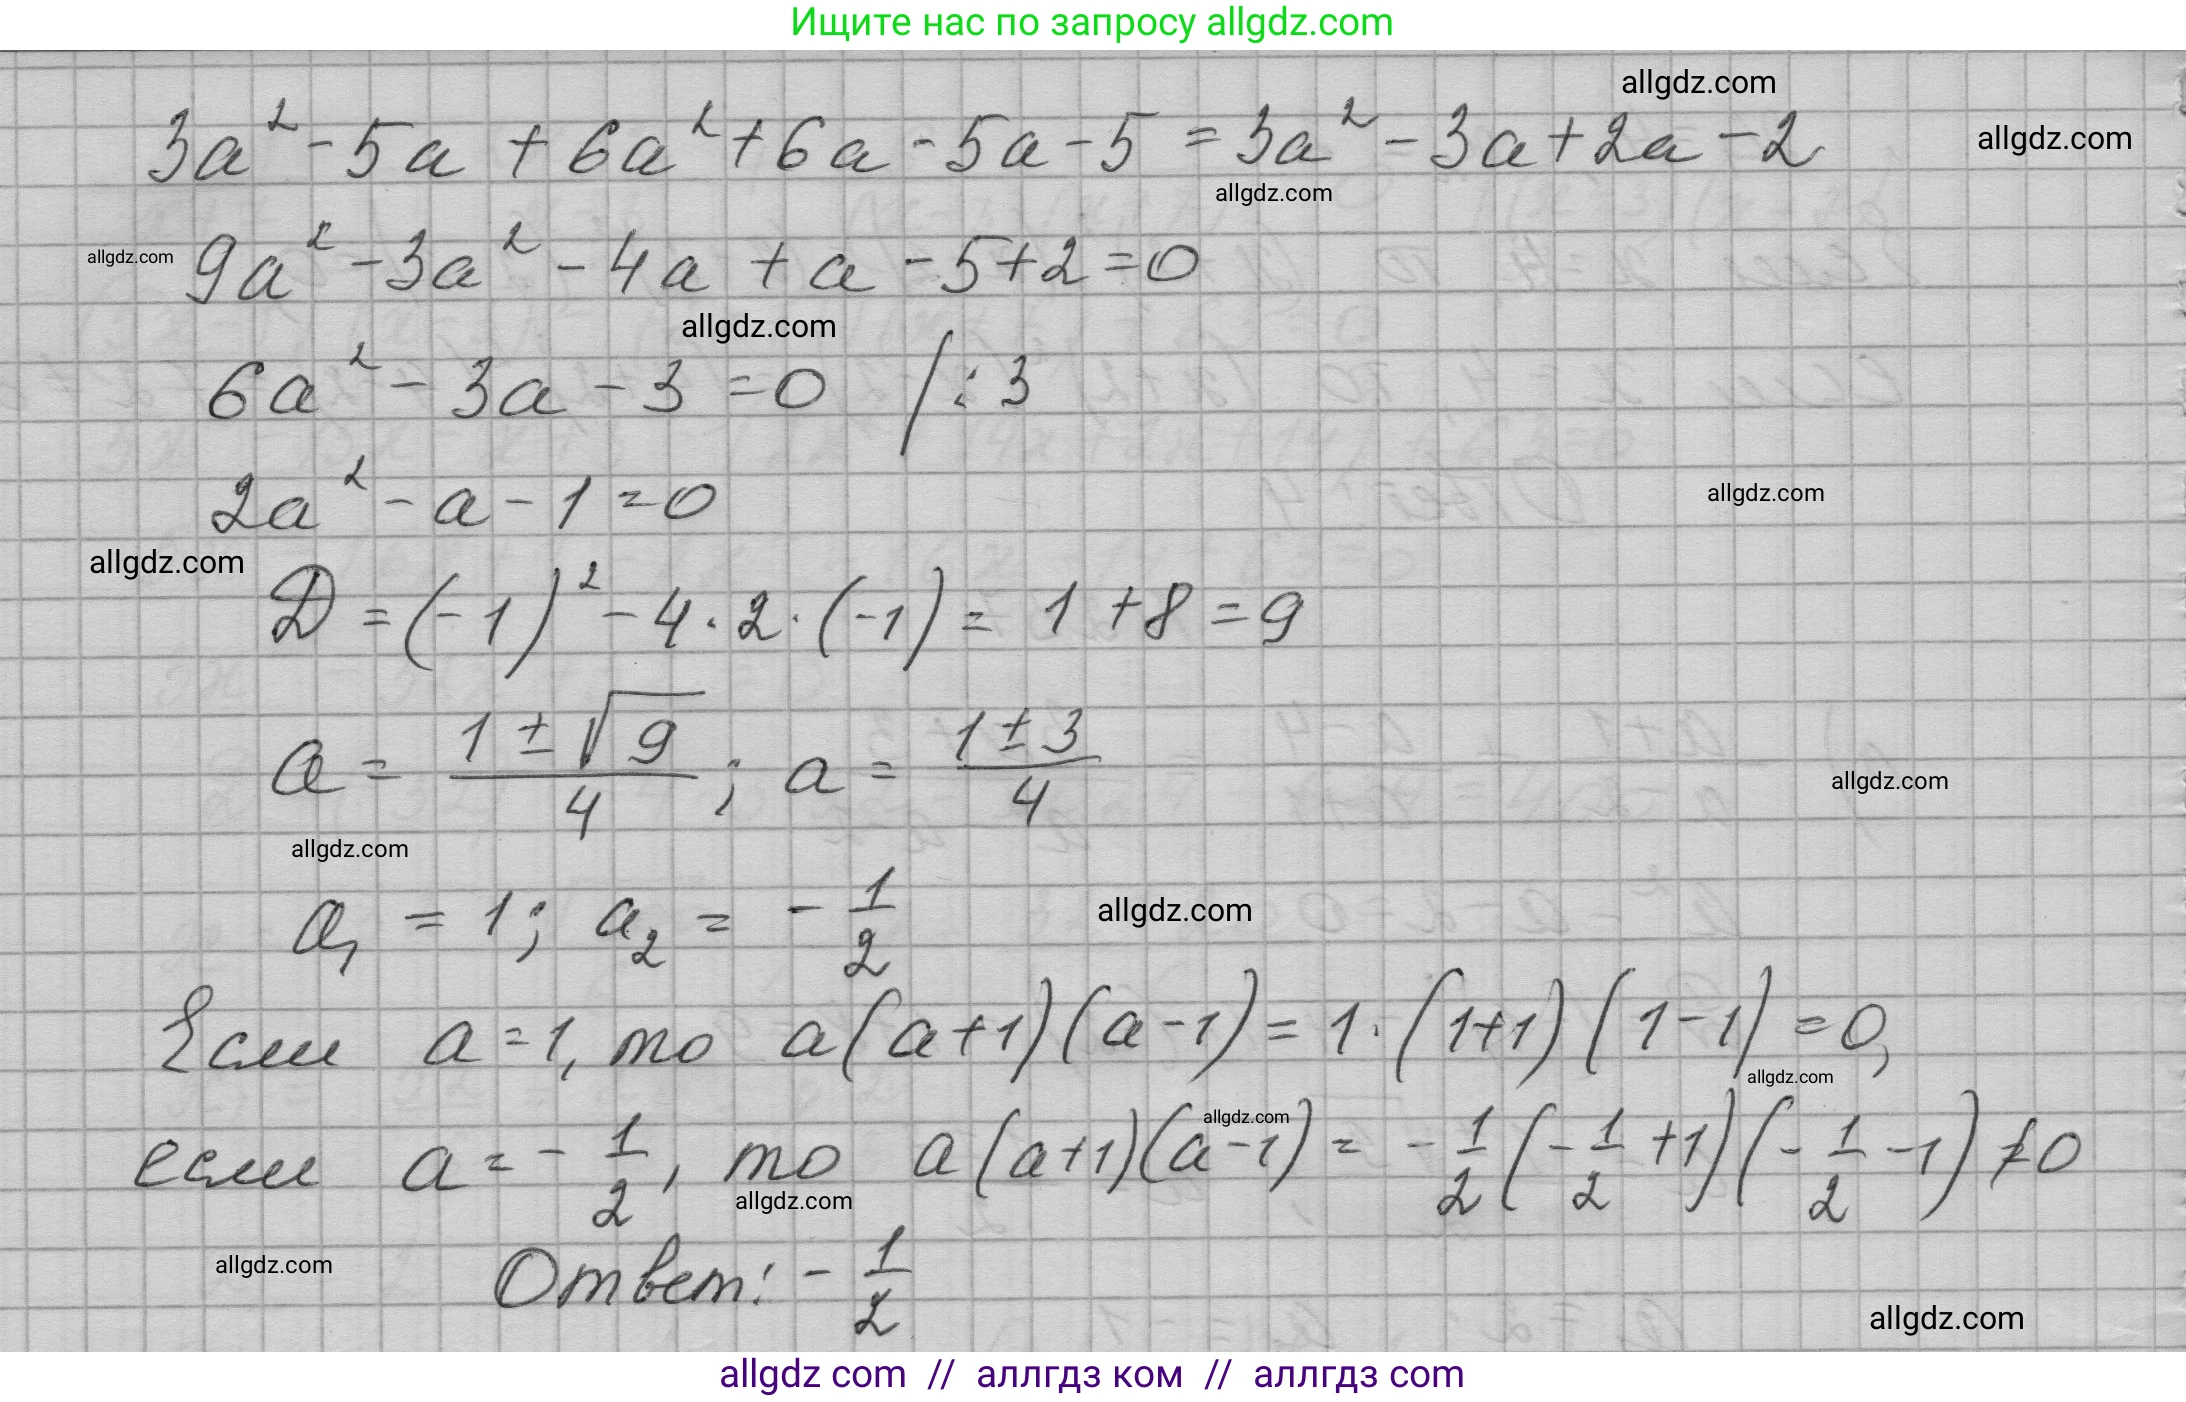 Ищите нас по запросу allgdz.com
allgdz.com
3a² - 5a + 6a² + 6a - 5a - 5 = 3a² - 3a + 2a - 2
allgdz.com
allgdz.com
allgdz.com
9a² - 3a² - 4a + a - 5 + 2 = 0
allgdz.com
6a² - 3a - 3 = 0 / : 3
2a² - a - 1 = 0
allgdz.com
allgdz.com
D = (-1)² - 4 · 2 · (-1) = 1 + 8 = 9
a = (1 ± √9)/4 ; a = (1 ± 3)/4
allgdz.com
allgdz.com
a₁ = 1; a₂ = - 1/2
allgdz.com
Если a = 1, то a(a+1)(a-1) = 1 · (1+1)(1-1) = 0,
allgdz.com
allgdz.com
если a = - 1/2, то a(a+1)(a-1) = - 1/2 (- 1/2 + 1)(- 1/2 - 1) ≠ 0
allgdz.com
allgdz.com
Ответ: - 1/2
allgdz.com
allgdz com // аллгдз ком // аллгдз com